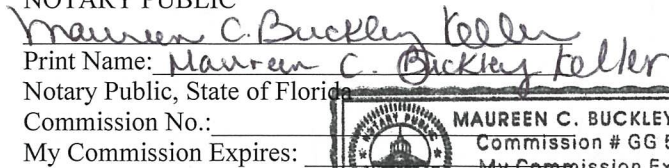 NOTARY PUBLIC
Maureen C. Buckley Keller
Print Name: Maureen C. Buckley Keller
Notary Public, State of Florida
Commission No.:
My Commission Expires:
NOTARY PUBLIC
MAUREEN C. BUCKLEY
Commission # GG
My Commission Ex